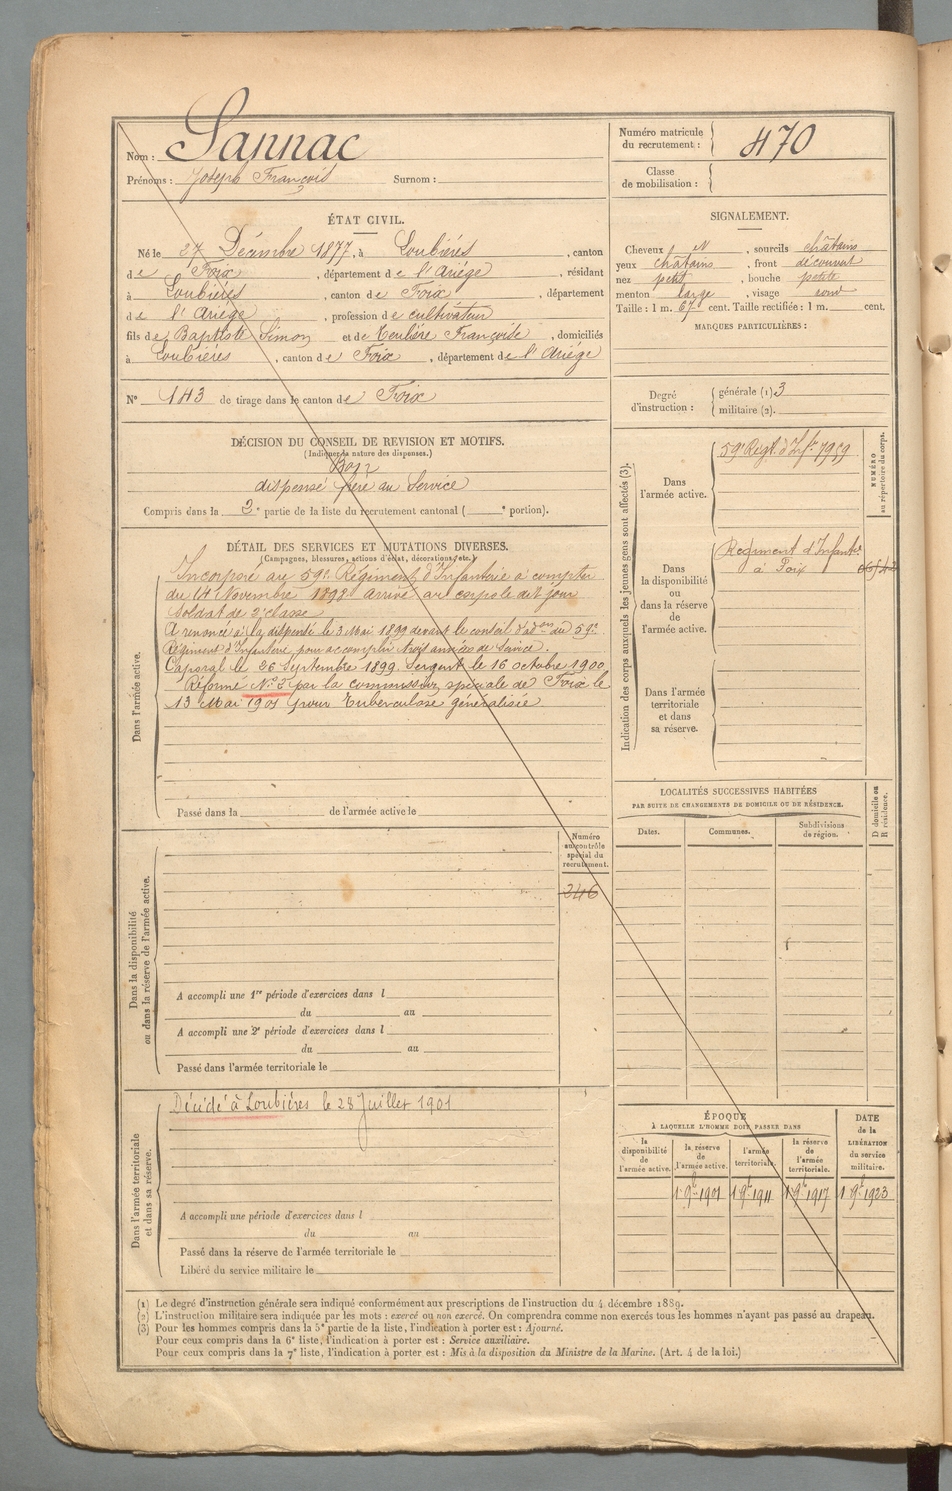 Nom : Sannac
Prénoms : Joseph François Surnom :
Numéro matricule du recrutement : 470
Classe de mobilisation :
ÉTAT CIVIL.
Né le 27 Décembre 1877, à Loubières, canton
de Foix, département de l'Ariège, résidant
à Loubières, canton de Foix, département
de l'Ariège, profession de cultivateur
fils de Baptiste Simon et de Françoise, domiciliés
à Loubières, canton de Foix, département de l'Ariège
N° 143 de tirage dans le canton de Foix
SIGNALEMENT.
Cheveux N, sourcils châtains
yeux châtains, front découvert
nez petit, bouche petite
menton large, visage rond
Taille : 1 m. 67 cent. Taille rectifiée : 1 m. cent.
MARQUES PARTICULIÈRES :
Degré d'instruction :
générale (1) 3
militaire (2).
DÉCISION DU CONSEIL DE REVISION ET MOTIFS.
(Indiquer la nature des dispenses.)
Bon
dispensé frère au Service
Compris dans la 2e partie de la liste du recrutement cantonal ( e portion).
DÉTAIL DES SERVICES ET MUTATIONS DIVERSES.
(Campagnes, blessures, actions d'éclat, décorations, etc.)
Dans l'armée active.
Incorporé au 59e Régiment d'Infanterie à compter
du 14 Novembre 1898 arrivé au corps le dit jour
soldat de 2e classe
A renoncé à la dispense le 3 Mai 1899 devant le conseil d'adon du 59e
Régiment d'Infanterie pour accomplir trois années de service.
Caporal le 26 Septembre 1899 Sergent le 16 octobre 1900
Réformé N° 2 par la commission spéciale de Foix le
13 Mai 1901 pour Tuberculose généralisée
Passé dans la de l'armée active le
Indication des corps auxquels les jeunes gens sont affectés (3).
NUMÉRO au répertoire du corps.
Dans l'armée active.
59e Regt d'Infie 7959
Dans la disponibilité ou dans la réserve de l'armée active.
Regiment d'Infantie
à Foix
Dans l'armée territoriale et dans sa réserve.
LOCALITÉS SUCCESSIVES HABITÉES
PAR SUITE DE CHANGEMENTS DE DOMICILE OU DE RÉSIDENCE.
Dates. Communes. Subdivisions de région. D domicile ou R résidence.
Dans la disponibilité ou dans la réserve de l'armée active.
Numéro au contrôle spécial du recrutement.
246
A accompli une 1re période d'exercices dans l
du au
A accompli une 2e période d'exercices dans l
du au
Passé dans l'armée territoriale le
Dans l'armée territoriale et dans sa réserve.
Décédé à Loubières le 28 Juillet 1901
A accompli une période d'exercices dans l
du au
Passé dans la réserve de l'armée territoriale le
Libéré du service militaire le
ÉPOQUE
À LAQUELLE L'HOMME DOIT PASSER DANS
la disponibilité de l'armée active. la réserve de l'armée active. l'armée territoriale. la réserve de l'armée territoriale. DATE de la LIBÉRATION du service militaire.
1 9e 1901 1 9e 1911 1 9e 1917 1 9e 1923
(1) Le degré d'instruction générale sera indiqué conformément aux prescriptions de l'instruction du 4 décembre 1889.
(2) L'instruction militaire sera indiquée par les mots : exercé ou non exercé. On comprendra comme non exercés tous les hommes n'ayant pas passé au drapeau.
(3) Pour les hommes compris dans la 5e partie de la liste, l'indication à porter est : Ajourné.
Pour ceux compris dans la 6e liste, l'indication à porter est : Service auxiliaire.
Pour ceux compris dans la 7e liste, l'indication à porter est : Mis à la disposition du Ministre de la Marine. (Art. 4 de la loi.)